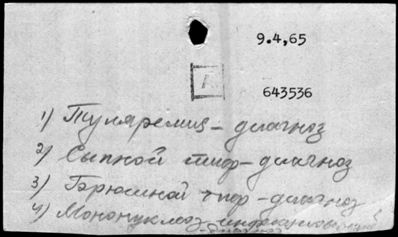 9.4,65
643536
1) Туляремия - диагноз
2) Сыпной тиф - диагноз
3) Брюшной тиф - диагноз
4) Мононуклеоз
диагноз